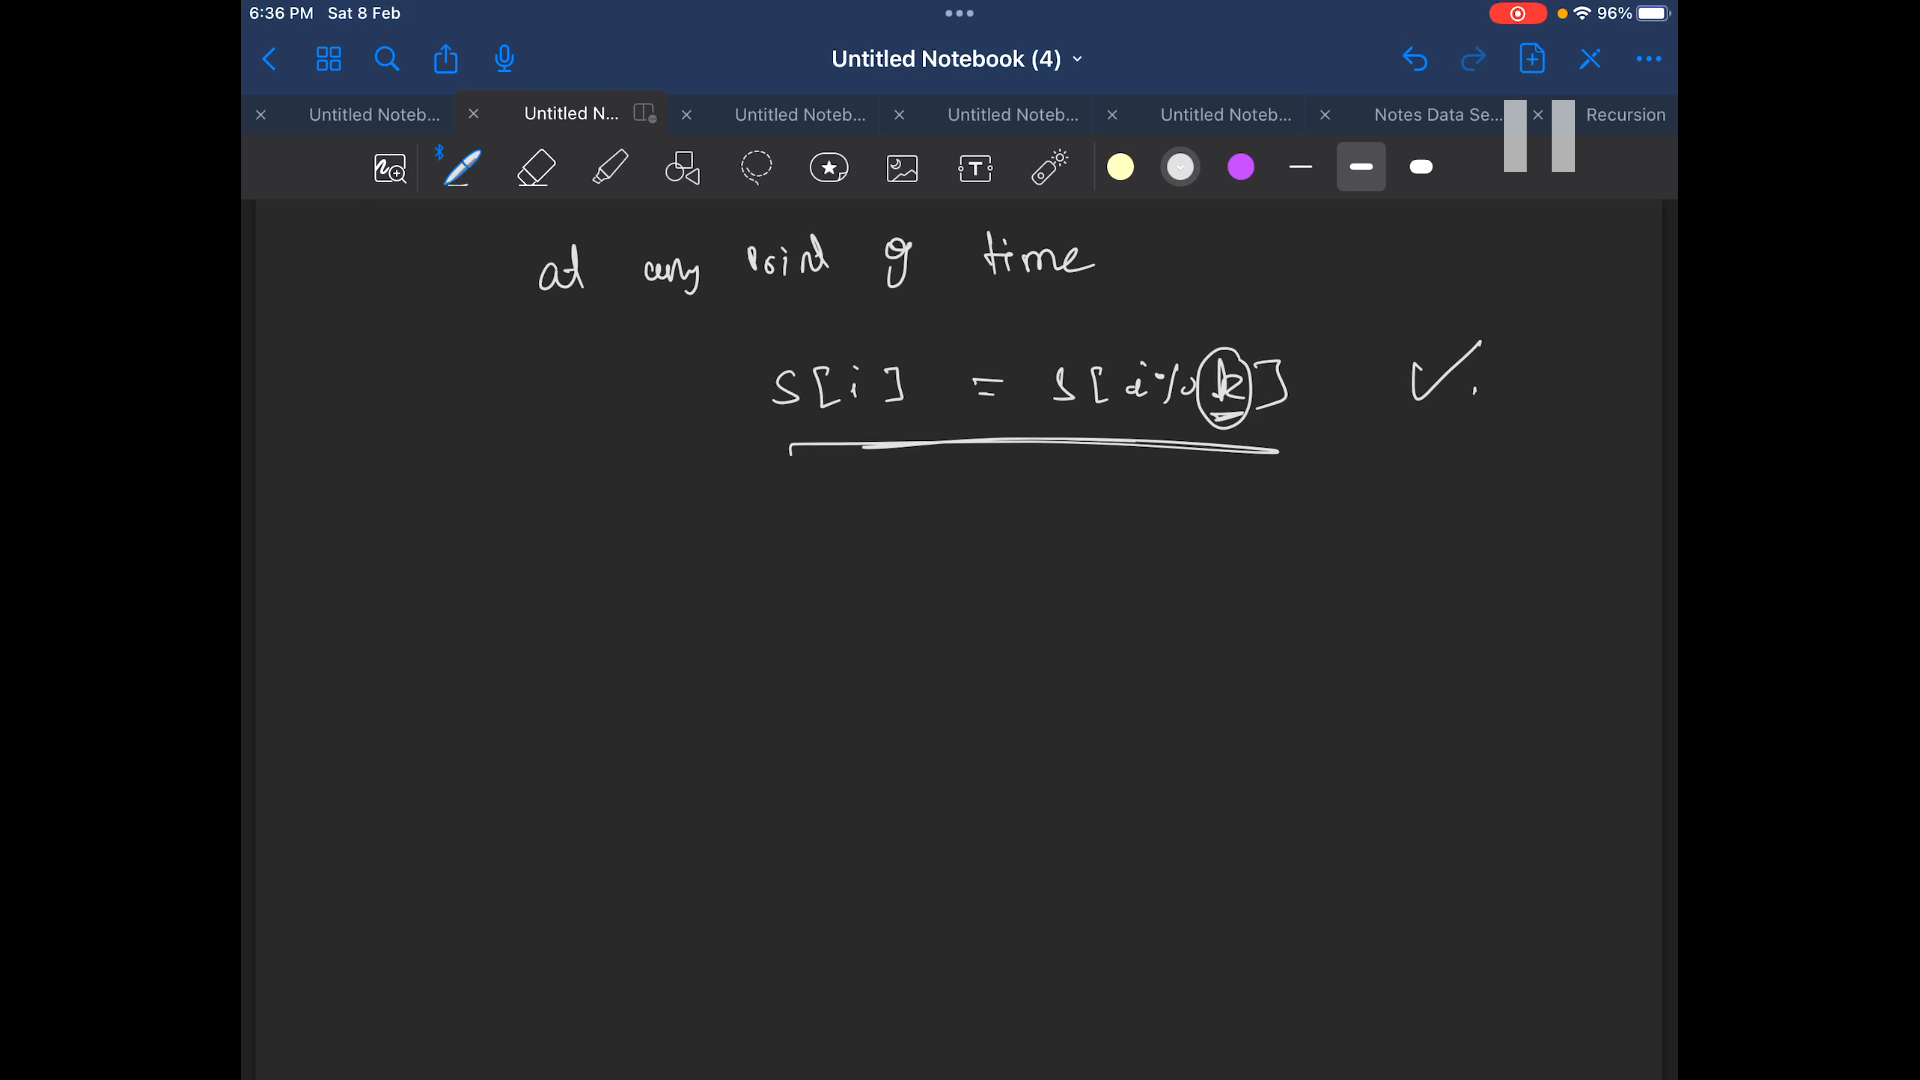 6:36 PM Sat 8 Feb
96%
Untitled Notebook (4)
Untitled Noteb...
Untitled N...
Untitled Noteb...
Untitled Noteb...
Untitled Noteb...
Notes Data Se...
Recursion
T
at any point of time
S[i] = S[i%k]